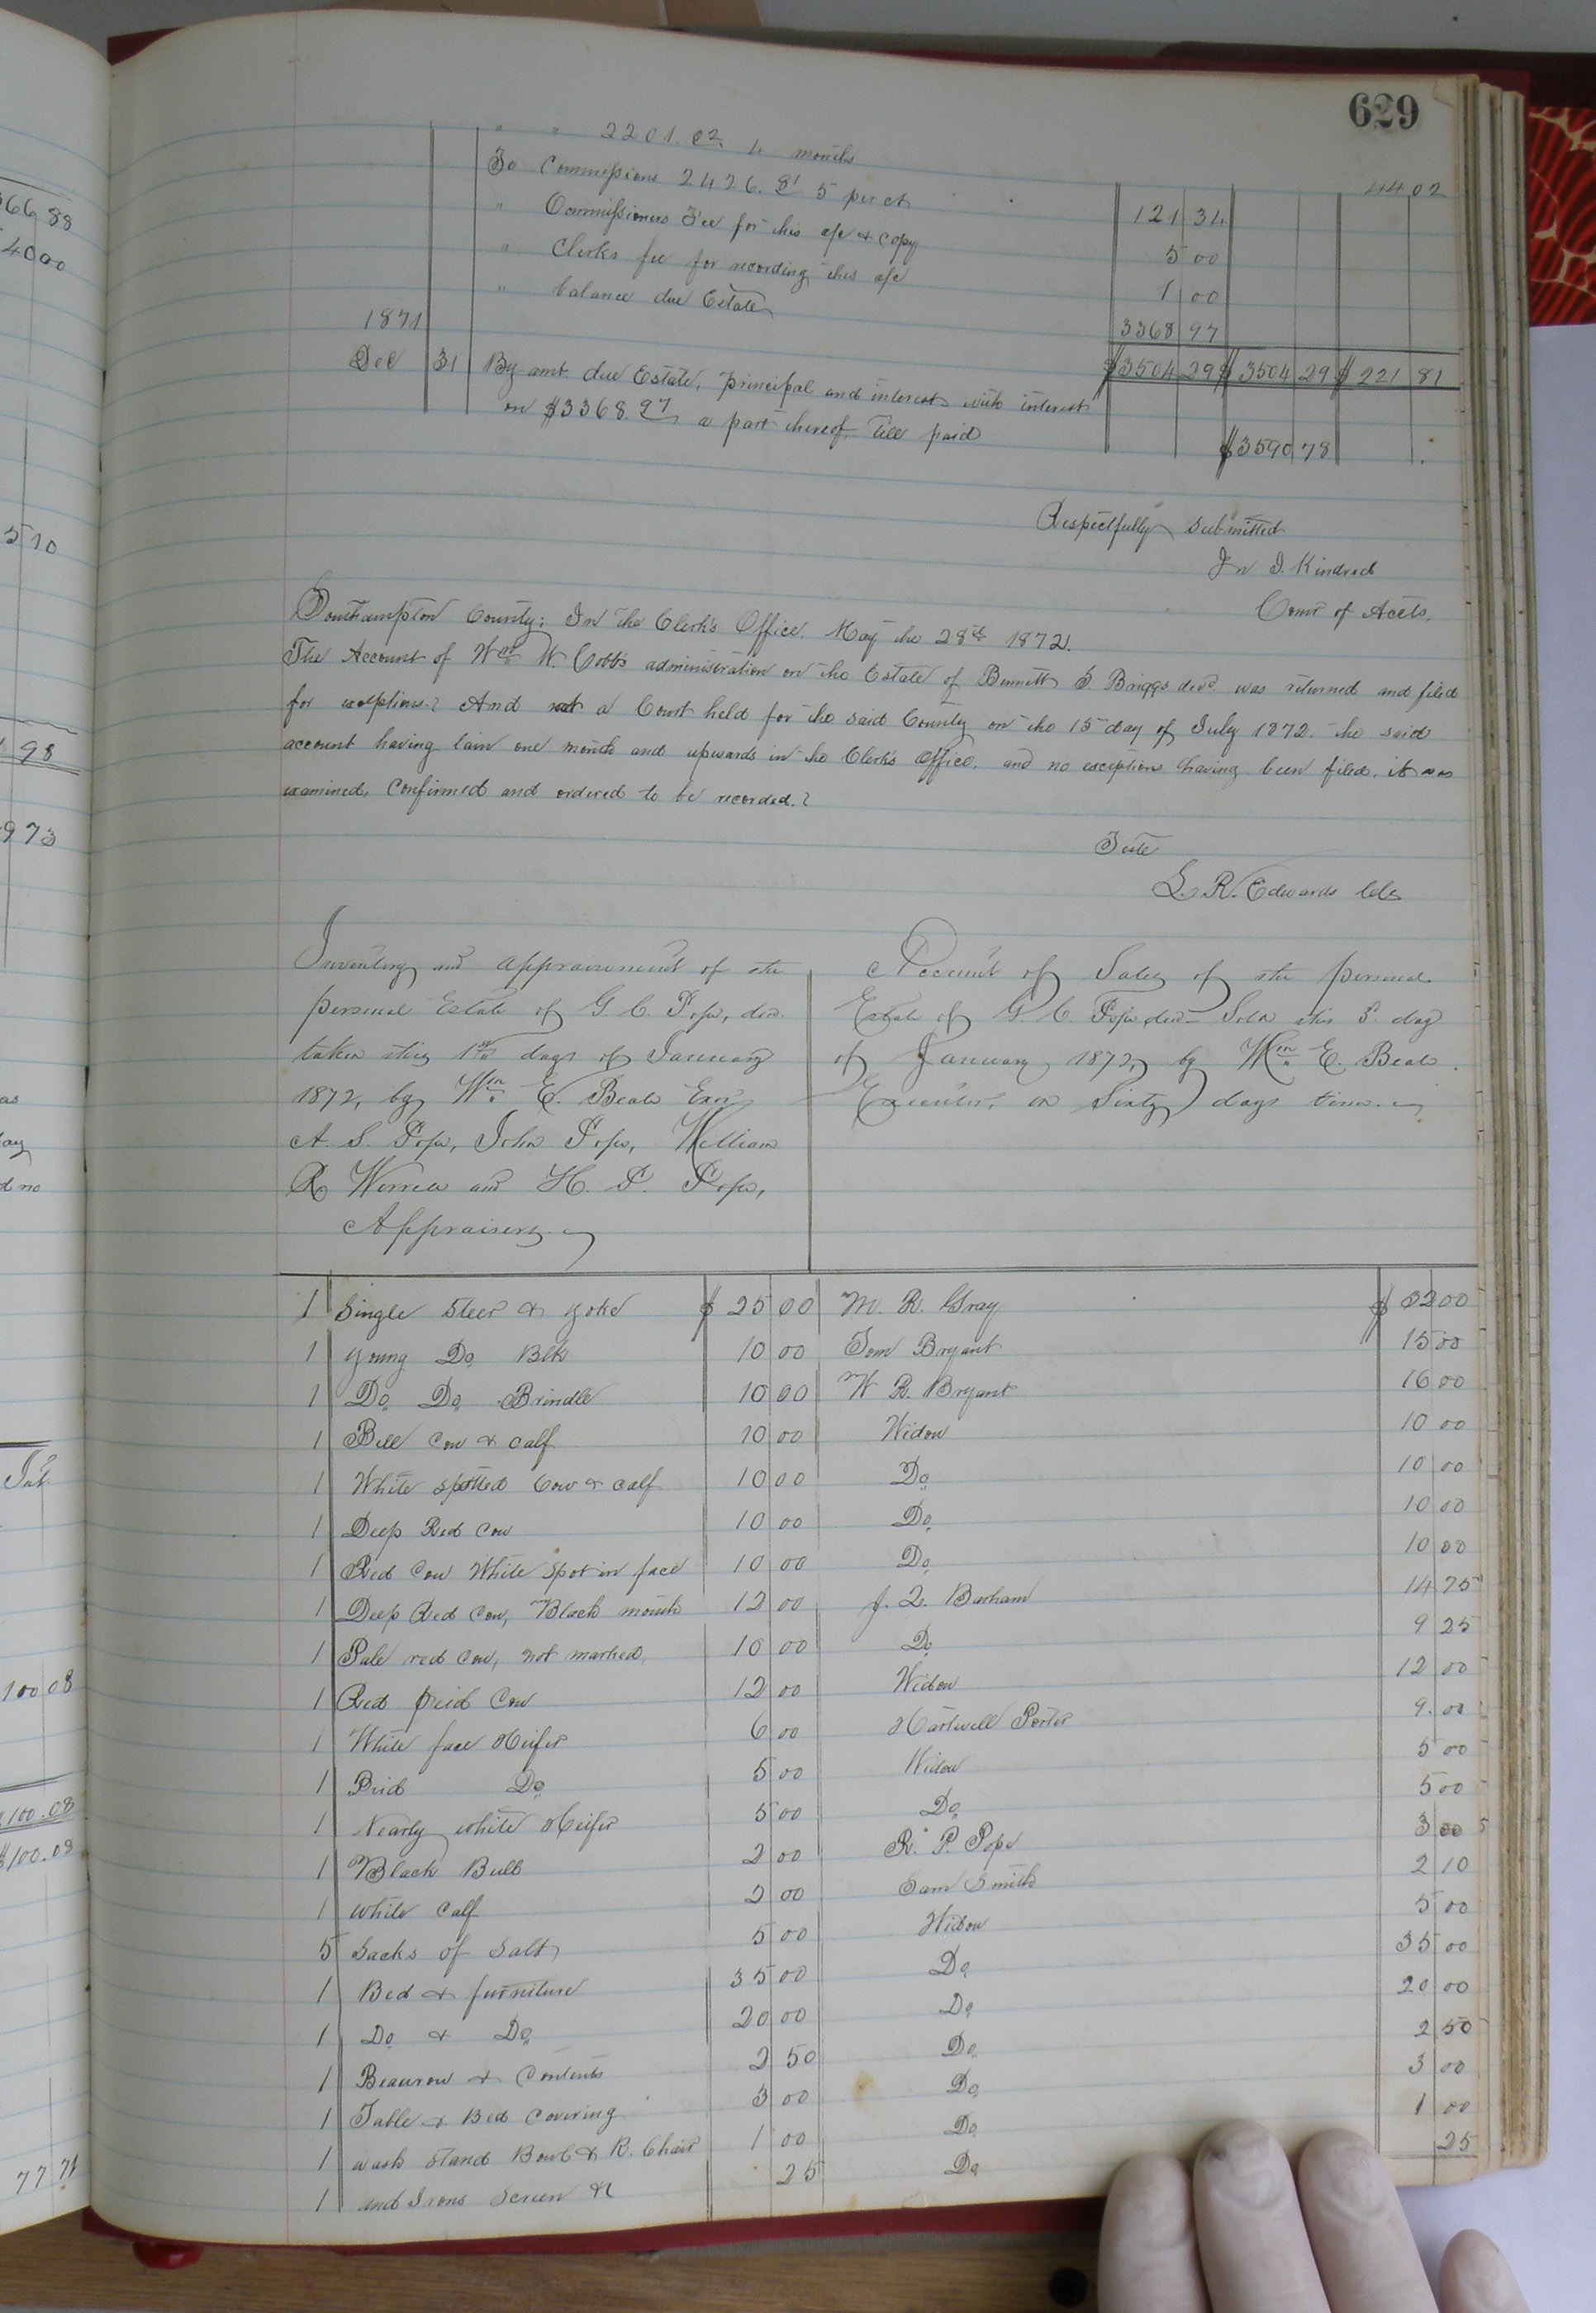 629
" " 2201.02 4 months 4402
To Commissions 2426.81 5 per ct 121 34
" Commissioners Fee for this a/c & copy 5 00
" Clerks fee for recording this a/c 1 00
" balance due Estate 3368 97
1871 $3504 29 $3504 29 $221 81
Dec 31 By amt due Estate, principal and interest with interest
on $3368.97 a part thereof till paid $3590 78
Respectfully submitted
Jn J. Kindred
Comr of Accts.
Southampton County: In the Clerk's Office. May the 28th 1872.
The Account of Wm W. Cobb's administration on the Estate of Bennett S Briggs decd was returned and filed
for exceptions: And at a Court held for the said County on the 15 day of July 1872. the said
account having lain one month and upwards in the Clerk's Office, and no exceptions having been filed, it was
examined, confirmed and ordered to be recorded.
Teste
L. R. Edwards Clk
Inventory and appraisement of the
personal Estate of G. C. Pope, dec.
taken this 1st days of January
1872, by Wm E. Beale Exr
A. S. Pope, John Pope, William
R Worrell and H. P. Pope,
Appraisers.
Account of Sales of the personal
Estate of G. C. Pope, dec. Sold this 3. day
of January 1872, by Wm E. Beale.
Executor, on Sixty days time.
1 Single Steer & yoke $ 25 00 M. R. Gray $ 32 00
1 young Do Blk 10 00 Tom Bryant 15 00
1 Do Do Brindle 10 00 W R. Bryant 16 00
1 Bell Cow & calf 10 00 Widow 10 00
1 White spotted Cow & calf 10 00 Do 10 00
1 Deep Red Cow 10 00 Do 10 00
1 Red Cow White Spot in face 10 00 Do 10 00
1 Deep Red Cow, Black mouth 12 00 J. Q. Barham 14 75
1 Pale red Cow, not marked 10 00 Do 9 25
1 Red pied Cow 12 00 Widow 12 00
1 White face Heifer 6 00 Hartwell Porter 9.00
1 Pied Do 5 00 Widow 5 00
1 Nearly white Heifer 5 00 Do 5 00
1 Black Bull 2 00 R. P. Pope 3 00
1 White Calf 2 00 Sam Smith 2 10
5 Sacks of Salt 5 00 Widow 5 00
1 Bed & furniture 35 00 Do 35 00
1 Do & Do 20 00 Do 20 00
1 Beaurow & Contents 2 50 Do 2 50
1 Table & Bed Covering 3 00 Do 3 00
1 wash Stand Bowl & R. Chair 1 00 Do 1 00
1 and Irons Screen &c 25 Do 25
66 88
4000
510
98
973
as
ay
d no
Int
100 08
100.08
$100.08
77 71